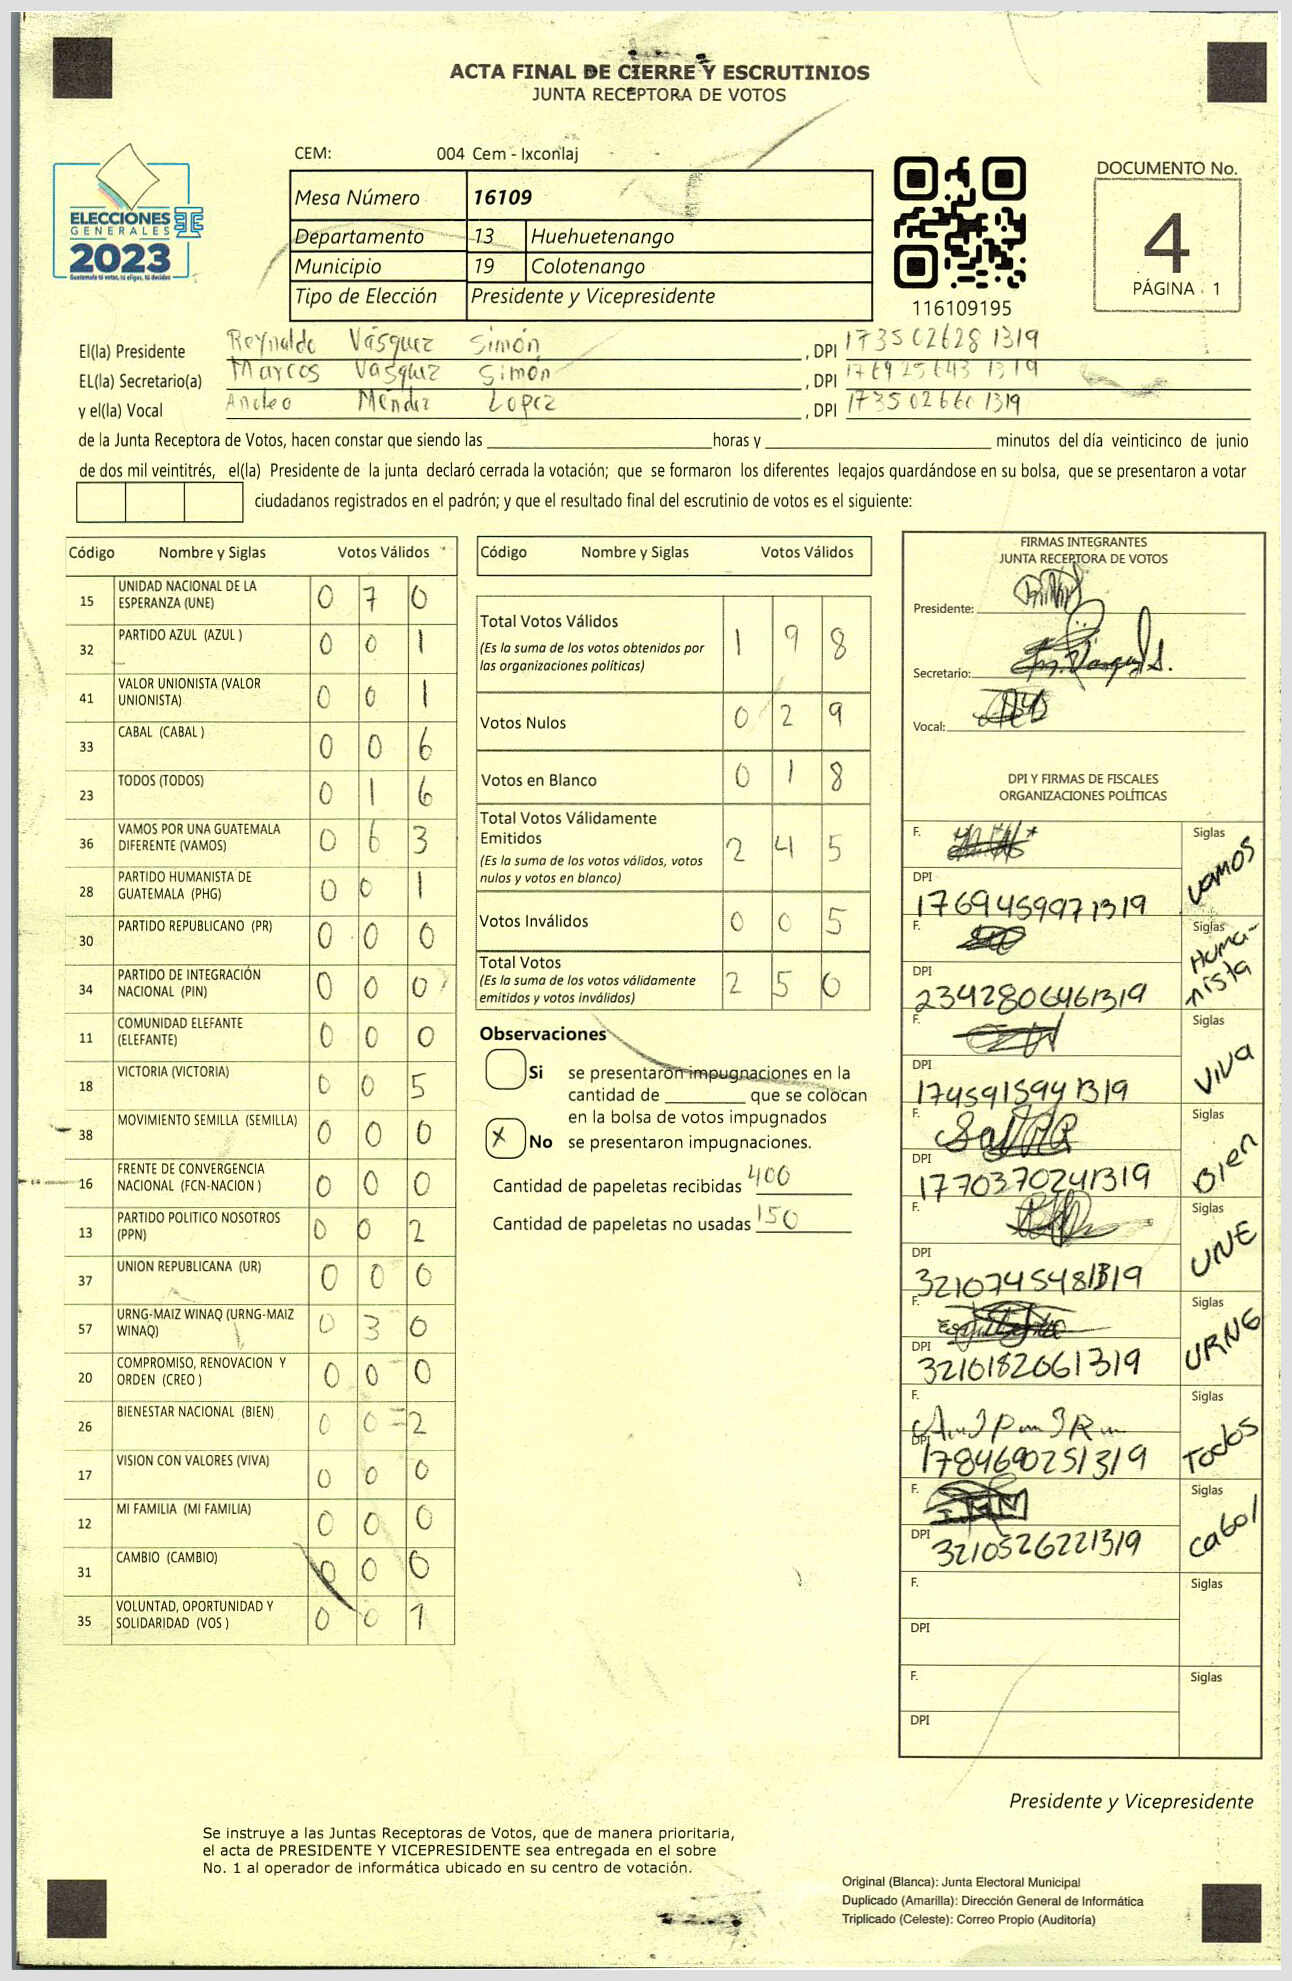 ACTA FINAL DE CIERRE Y ESCRUTINIOS
JUNTA RECEPTORA DE VOTOS
CEM: 004 Cem - Ixconlaj
ELECCIONES
GENERALES
2023
Guatemala tú votas, tú eliges, tú decides
Mesa Número 16109
Departamento 13 Huehuetenango
Municipio 19 Colotenango
Tipo de Elección Presidente y Vicepresidente
116109195
DOCUMENTO No.
4
PÁGINA 1
El(la) Presidente Reynaldo Vásquez Simón, DPI 173502628 1319
EL(la) Secretario(a) Marcos Vasquez Simón, DPI 176925643 1319
y el(la) Vocal Méndez Lopez, DPI 173502660 1319
de la Junta Receptora de Votos, hacen constar que siendo las horas y minutos del día veinticinco de junio
de dos mil veintitrés, el(la) Presidente de la junta declaró cerrada la votación; que se formaron los diferentes legajos guardándose en su bolsa, que se presentaron a votar
ciudadanos registrados en el padrón; y que el resultado final del escrutinio de votos es el siguiente:
Código Nombre y Siglas Votos Válidos
15 UNIDAD NACIONAL DE LA ESPERANZA (UNE) 0 7 0
32 PARTIDO AZUL (AZUL ) 0 0 1
41 VALOR UNIONISTA (VALOR UNIONISTA) 0 0 1
33 CABAL (CABAL ) 0 0 6
23 TODOS (TODOS) 0 1 6
36 VAMOS POR UNA GUATEMALA DIFERENTE (VAMOS) 0 6 3
28 PARTIDO HUMANISTA DE GUATEMALA (PHG) 0 0 1
30 PARTIDO REPUBLICANO (PR) 0 0 0
34 PARTIDO DE INTEGRACIÓN NACIONAL (PIN) 0 0 0
11 COMUNIDAD ELEFANTE (ELEFANTE) 0 0 0
18 VICTORIA (VICTORIA) 0 0 5
38 MOVIMIENTO SEMILLA (SEMILLA) 0 0 0
16 FRENTE DE CONVERGENCIA NACIONAL (FCN-NACION ) 0 0 0
13 PARTIDO POLITICO NOSOTROS (PPN) 0 0 2
37 UNION REPUBLICANA (UR) 0 0 0
57 URNG-MAIZ WINAQ (URNG-MAIZ WINAQ) 0 3 0
20 COMPROMISO, RENOVACION Y ORDEN (CREO ) 0 0 0
26 BIENESTAR NACIONAL (BIEN) 0 0 2
17 VISION CON VALORES (VIVA) 0 0 0
12 MI FAMILIA (MI FAMILIA) 0 0 0
31 CAMBIO (CAMBIO) 0 0 0
35 VOLUNTAD, OPORTUNIDAD Y SOLIDARIDAD (VOS ) 0 0 1
Código Nombre y Siglas Votos Válidos
Total Votos Válidos 1 9 8
(Es la suma de los votos obtenidos por
las organizaciones políticas)
Votos Nulos 0 2 9
Votos en Blanco 0 1 8
Total Votos Válidamente
Emitidos 2 4 5
(Es la suma de los votos válidos, votos
nulos y votos en blanco)
Votos Inválidos 0 0 5
Total Votos 2 5 0
(Es la suma de los votos válidamente
emitidos y votos inválidos)
Observaciones
Si se presentaron impugnaciones en la
cantidad de que se colocan
en la bolsa de votos impugnados
X No se presentaron impugnaciones.
Cantidad de papeletas recibidas 400
Cantidad de papeletas no usadas 150
FIRMAS INTEGRANTES
JUNTA RECEPTORA DE VOTOS
Presidente:
Secretario:
Vocal:
DPI Y FIRMAS DE FISCALES
ORGANIZACIONES POLÍTICAS
F. Siglas vamos
DPI 1769459971319
F. Siglas Humanista
DPI 2342806461319
F. Siglas Viva
DPI 1745915941319
F. Siglas Bien
DPI 1770370241319
F. Siglas UNE
DPI 3210745481319
F. Siglas URNG
DPI 3210182061319
F. Siglas Todos
DPI 1784690251319
F. Siglas cabal
DPI 3210526221319
F. Siglas
DPI
F. Siglas
DPI
Presidente y Vicepresidente
Se instruye a las Juntas Receptoras de Votos, que de manera prioritaria,
el acta de PRESIDENTE Y VICEPRESIDENTE sea entregada en el sobre
No. 1 al operador de informática ubicado en su centro de votación.
Original (Blanca): Junta Electoral Municipal
Duplicado (Amarilla): Dirección General de Informática
Triplicado (Celeste): Correo Propio (Auditoría)